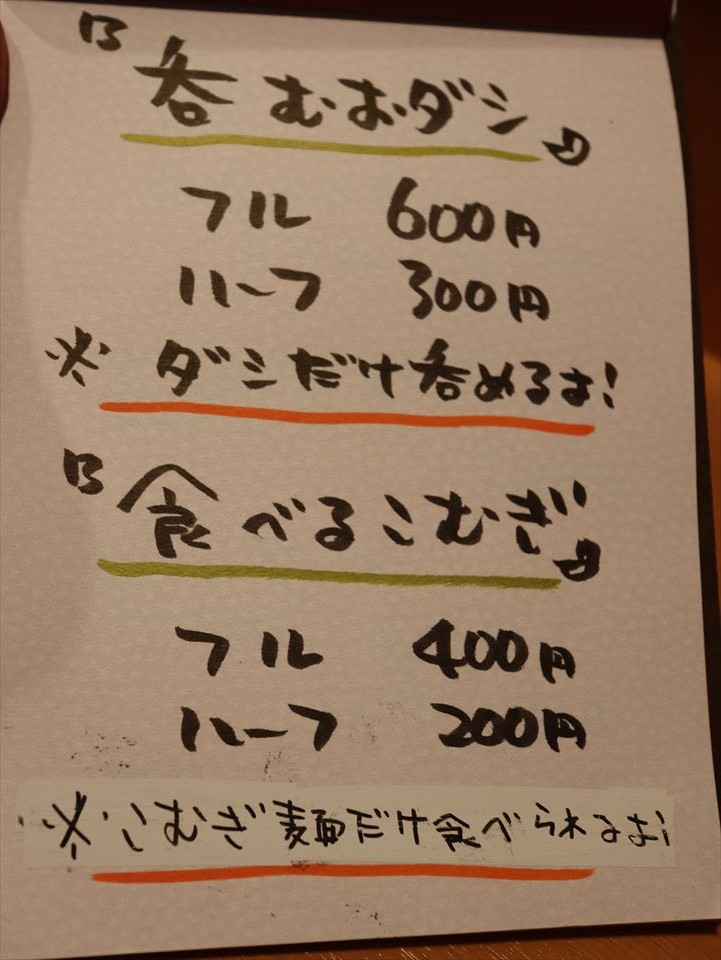 『呑むおダシ』
フル 600円
ハーフ 300円
※ ダシだけ呑めるよ!
『食べるこむぎ』
フル 400円
ハーフ 200円
※こむぎ麺だけ食べられるよ!